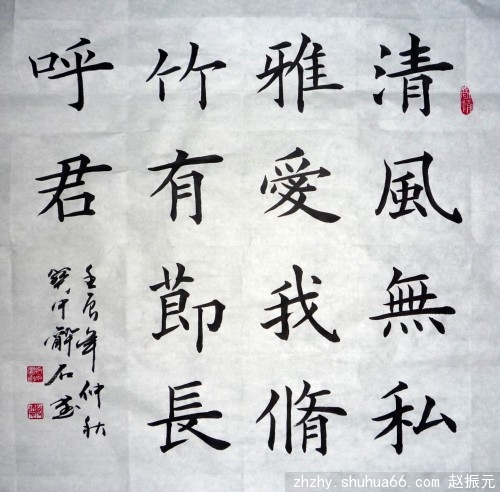 清風無私
雅愛我脩
竹有節長
呼君
壬辰年仲秋
zhzhy.shuhua66.com 赵振元